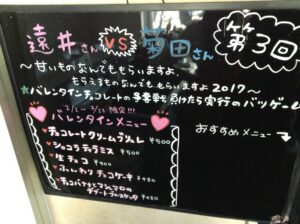 遠井さん VS 夢田さん 第3回
〜甘いものなんでももらいますよ、
もらえるものなんでももらいますよ2017〜
☆バレンタインチョコレートの争奪戦 負けたら実行のバツゲーム
2/1〜 限定!!!
バレンタインメニュー
♥チョコレートクリームブリュレ ¥500
♥ショコラテラミス ¥500
♥生チョコ ¥500
♥ふんわりチョコケーキ ¥480
♥チョコバナナとマシュマロの
¥480
おすすめメニュー